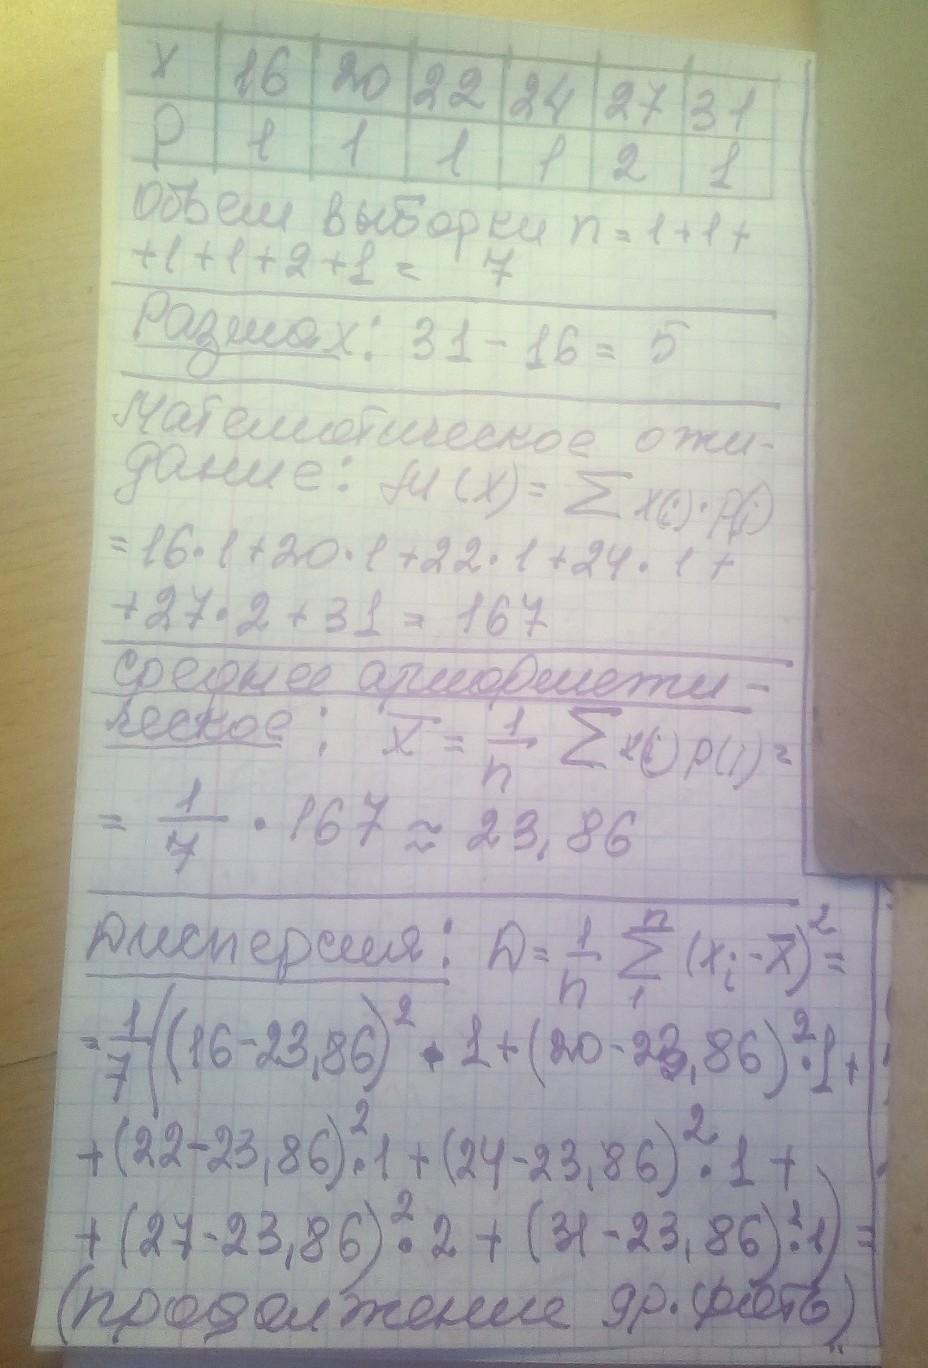 X 16 20 22 24 27 31
P 1 1 1 1 2 1
Объем выборки n = 1+1+
+1+1+2+1 = 7
Размах: 31 - 16 = 5
Математическое ожи-
дание: M(X) = ∑ x(i)·p(i)
= 16·1+20·1+22·1+24·1+
+27·2+31 = 167
Среднее арифмети-
ческое: x̅ = 1/n ∑ x(i) p(i) =
= 1/7 · 167 ≈ 23,86
Дисперсия: D = 1/n ∑ⁿ₁ (xᵢ - x̅)² =
= 1/7 ((16-23,86)² · 1+(20-23,86)²·1+
+(22-23,86)²·1+(24-23,86)²·1+
+(27-23,86)²·2+(31-23,86)²·1) =
(продолжение др. фото)